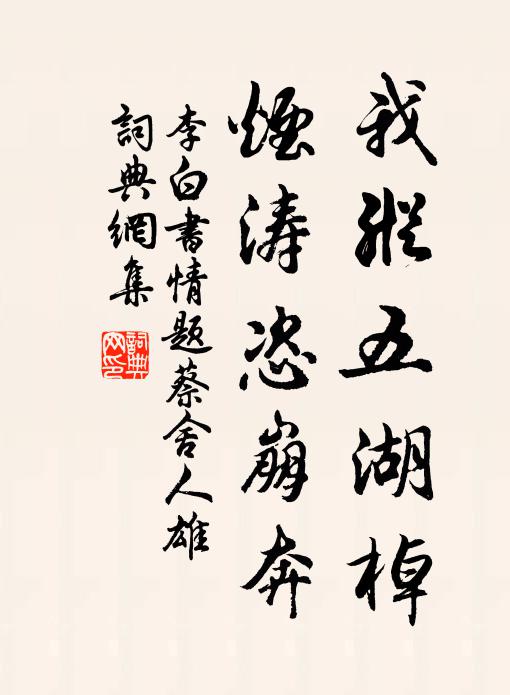 我縱五湖棹
煙涛恣崩奔
李白書情題蔡舍人雄
詞典網集
詞典
网印